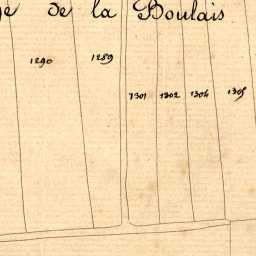 de la Boulais
1290
1289
1301
1302
1304
1305